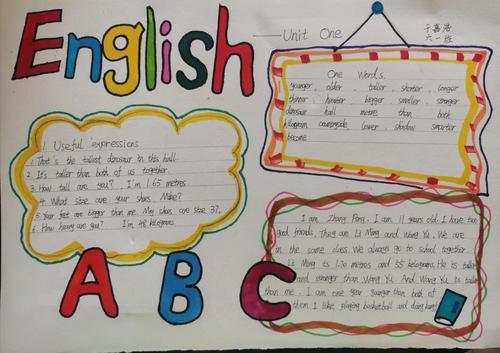 English
Unit One
于嘉浩
六一班
One Words.
younger, older, taller, shorter, longer
thinner heavier bigger smaller stronger
dinosaur hall metre than both
kilogram countryside lower, shadow smarter
become
Useful expressions
1. That's the tallest dinosaur in this hall.
2. It's taller than both of us together.
3. How tall are you? I'm 1.65 metres
4. What size are your shoes, Mike?
5. Your feet are bigger than me. My shoes are size 37.
6. How heavy are you? I'm 48 kilograms
I am Zhang Peng. I am 11 years old. I have two
good friends. They are Li Ming and Wang Yu. We are
in the same class. We always go to school together
Li Ming is 1.70 metres and 55 kilograms. He is taller
and stronger than Wang Yu. And Wang Yu is taller
than me. I am one year younger than both of
them. I like playing basketball and
A B C